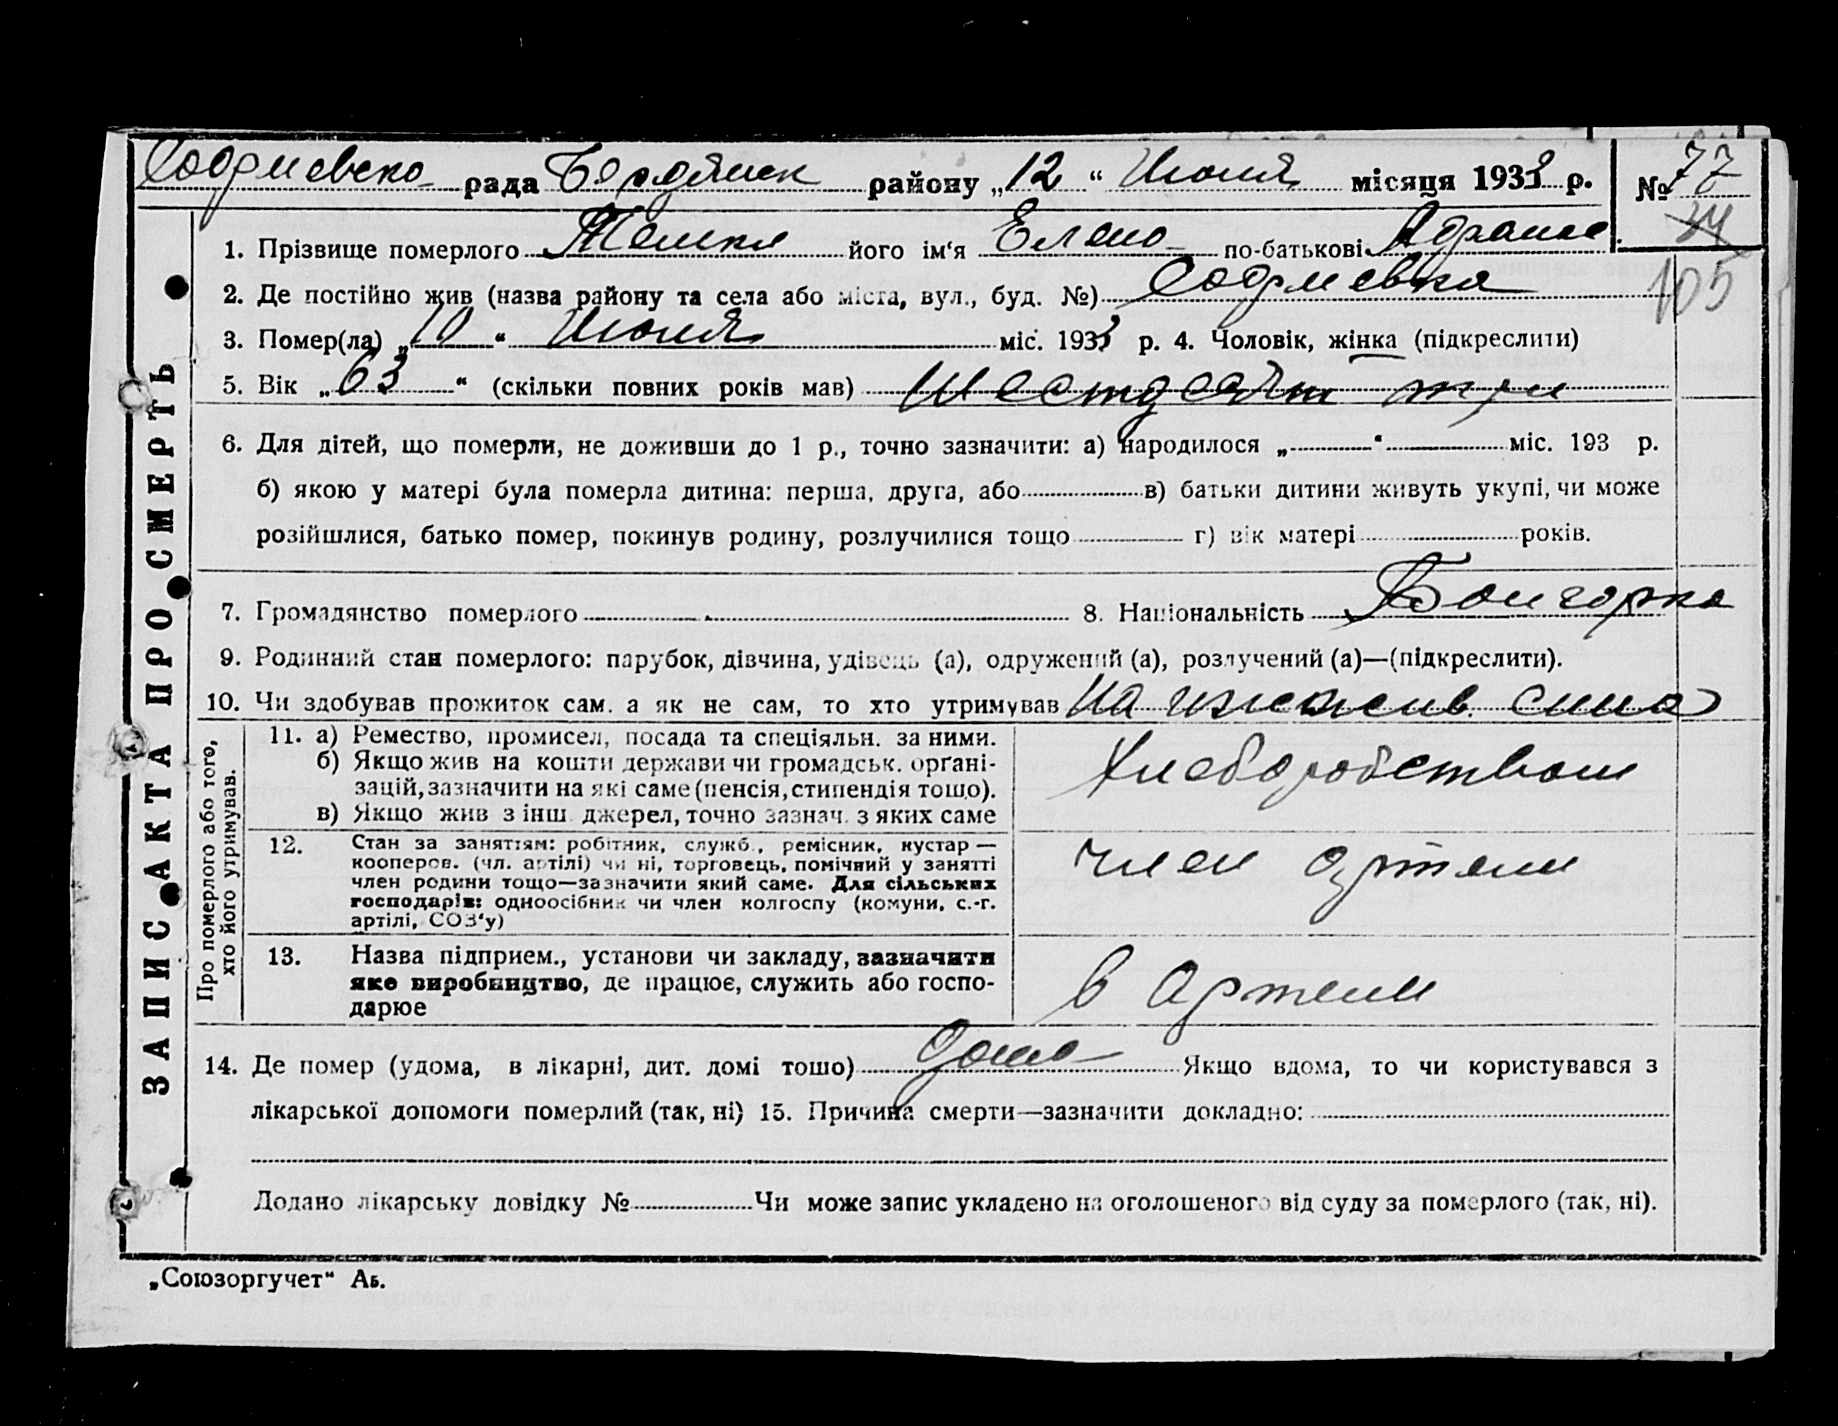 рада Бердянск району „12“ Июля місяця 1933 р. № 77
24
1. Прізвище померлого його ім‘я Елена по-батькові
105
2. Де постійно жив (назва району та села або міста, вул., буд. №)
3. Помер(ла) „10“ Июля міс. 1933 р. 4. Чоловік, жінка (підкреслити)
5. Вік „63“ (скільки повних років мав) Шестдесят три
6. Для дітей, що померли, не доживши до 1 р., точно зазначити: а) народилося „ “ міс. 193 р.
б) якою у матері була померла дитина: перша, друга, або в) батьки дитини живуть укупі, чи може
розійшлися, батько помер, покинув родину, розлучилися тощо г) вік матері років.
7. Громадянство померлого 8. Національність Болгорка
9. Родинний стан померлого: парубок, дівчина, удівець (а), одружений (а), розлучений (а)—(підкреслити).
10. Чи здобував прожиток сам. а як не сам, то хто утримував На иждив. сина
11. а) Ремество, промисел, посада та спеціяльн. за ними.
б) Якщо жив на кошти держави чи громадськ. орґані-
зацій, зазначити на які саме (пенсія, стипендія тощо).
в) Якщо жив з інш. джерел, точно зазнач. з яких саме
Хлеборобством
12. Стан за заняттям: робітник, служб., ремісник, кустар —
кооперов. (чл. артілі) чи ні, торговець, помічний у занятті
член родини тощо—зазначити який саме. Для сільських
господарів: одноосібник чи член колгоспу (комуни, с.-г.
артілі, СОЗ‘у)
член артели
13. Назва підприєм., установи чи закладу, зазначити
яке виробництво, де працює, служить або госпо-
дарює
в Артели
14. Де помер (удома, в лікарні, дит. домі тощо) дома Якщо вдома, то чи користувався з
лікарської допомоги померлий (так, ні) 15. Причина смерти—зазначити докладно:
Додано лікарську довідку № Чи може запис укладено на оголошеного від суду за померлого (так, ні).
ЗАПИС АКТА ПРО СМЕРТЬ
Про померлого або того,
хто його утримував.
„Союзоргучет“ Аь.